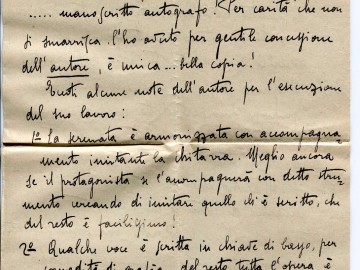 ..... manoscritto autografo! Per carità che non
si smarrisca. L'ho avuto per gentile concessione
dell'autore, è unica... bella copia!
Eccoti alcune note dell'autore per l'esecuzione
del suo lavoro:
1º La serenata è armonizzata con accompagna-
mento imitanti la chitarra. Meglio ancora
se il protagonista si l'accompagnerà con detto stru-
mento cercando di imitare quello ch'è scritto, che
del resto è facilissimo!
2º Qualche voce è scritta in chiave di basso, per
del resto tutta l'opera è